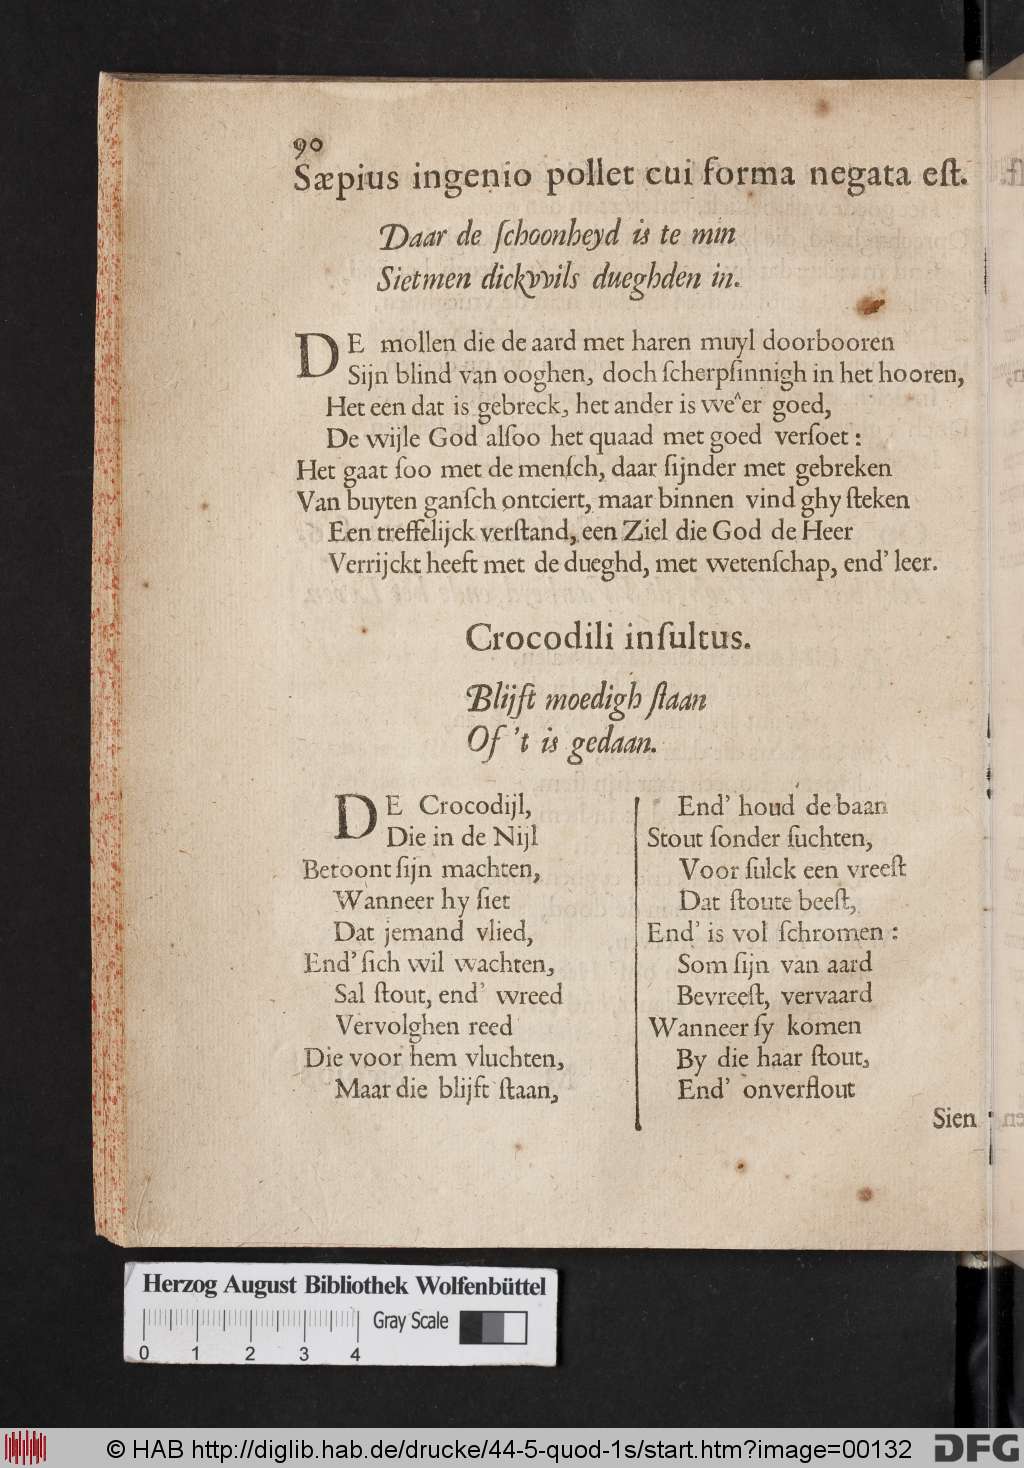 90
Sæpius ingenio pollet cui forma negata eſt.
Daar de ſchoonheyd is te min
Sietmen dickvvils dueghden in.
DE mollen die de aard met haren muyl doorbooren
Sijn blind van ooghen, doch ſcherpſinnigh in het hooren,
Het een dat is gebreck, het ander is we^er goed,
De wijle God alſoo het quaad met goed verſoet:
Het gaat ſoo met de menſch, daar ſijnder met gebreken
Van buyten ganſch ontciert, maar binnen vind ghy ſteken
Een treffelijck verſtand, een Ziel die God de Heer
Verrijckt heeft met de dueghd, met wetenſchap, end' leer.
Crocodili inſultus.
Blijft moedigh ſtaan
Of 't is gedaan.
DE Crocodijl,
Die in de Nijl
Betoont ſijn machten,
Wanneer hy ſiet
Dat jemand vlied,
End' ſich wil wachten,
Sal ſtout, end' wreed
Vervolghen reed
Die voor hem vluchten,
Maar die blijft ſtaan,
End' houd de baan
Stout ſonder ſuchten,
Voor ſulck een vreeſt
Dat ſtoute beeſt,
End' is vol ſchromen:
Som ſijn van aard
Bevreeſt, vervaard
Wanneer ſy komen
By die haar ſtout,
End' onverflout
Sien
Herzog August Bibliothek Wolfenbüttel
Gray Scale
0 1 2 3 4
© HAB http://diglib.hab.de/drucke/44-5-quod-1s/start.htm?image=00132
DFG